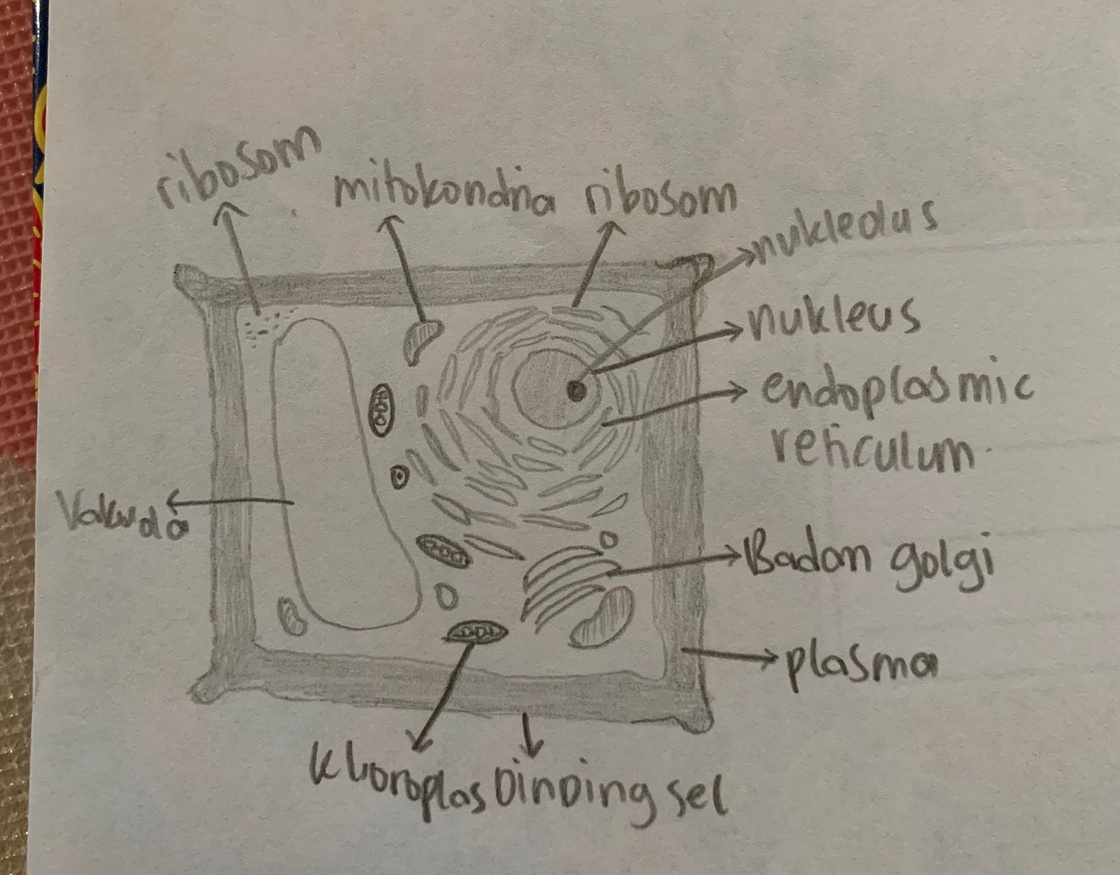 ribosom
mitokondria ribosom
nukleolus
nukleus
endoplasmic
reticulum
Vakuola
Badan golgi
plasma
kloroplas Dinding sel